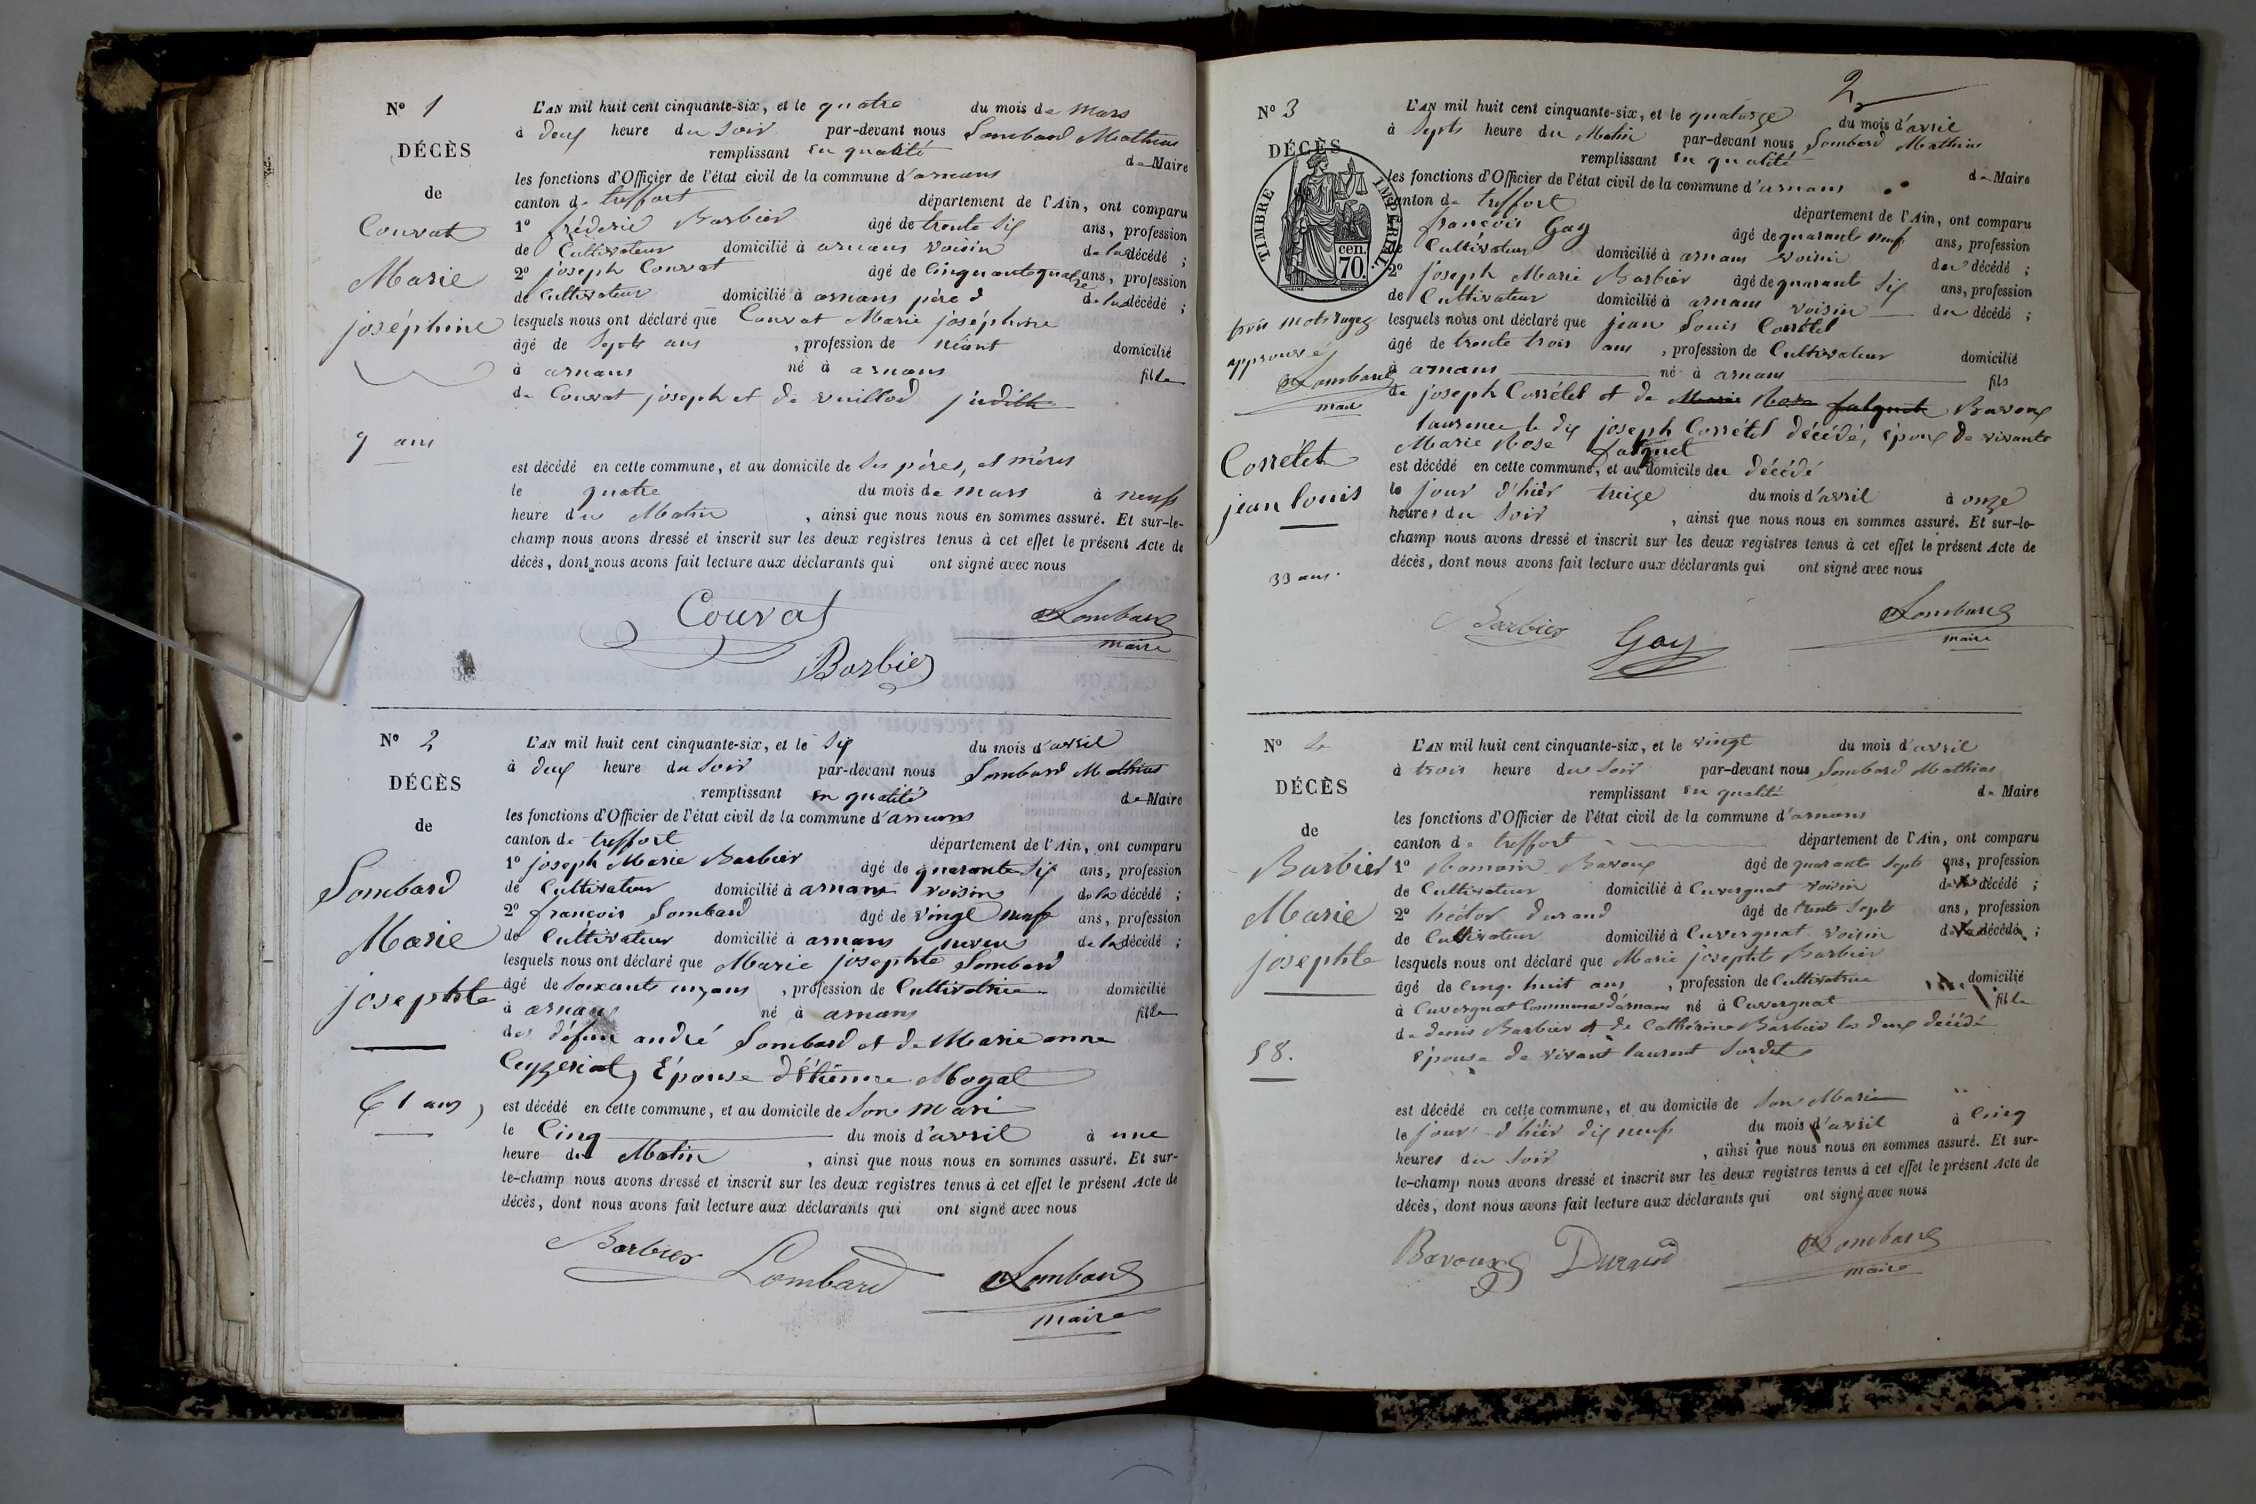 N° 1
DÉCÈS
de
Couvat
Marie
joséphine
7 ans
L'AN mil huit cent cinquante-six, et le quatre du mois de Mars
à deux heure du soir par-devant nous Lombard Mathias
remplissant en qualité de Maire
les fonctions d'Officier de l'état civil de la commune d'arnans
canton de treffort département de l'Ain, ont comparu
1° fréderic Barbier âgé de trente six ans, profession
de Cultivateur domicilié à arnans voisin de la décédé ;
2° joseph Couvat âgé de Cinquantequatre ans, profession
de Cultivateur domicilié à arnans père d de la décédé ;
lesquels nous ont déclaré que Couvat Marie joséphine
âgé de Septs ans , profession de néant domicilié
à arnans né à arnans fille
de Couvat joseph et de vuillod judith
est décédé en cette commune, et au domicile de ses pères, et mères
le quatre du mois de mars à neufs
heure du Matin , ainsi que nous nous en sommes assuré. Et sur-le-
champ nous avons dressé et inscrit sur les deux registres tenus à cet effet le présent Acte de
décès, dont nous avons fait lecture aux déclarants qui ont signé avec nous
Couvat Lombard
maire
Barbier
N° 2
DÉCÈS
de
Lombard
Marie
josephte
61 ans,
L'AN mil huit cent cinquante-six, et le Six du mois d'avril
à deux heure du soir par-devant nous Lombard Mathias
remplissant en qualité de Maire
les fonctions d'Officier de l'état civil de la commune d'arnans
canton de treffort département de l'Ain, ont comparu
1° joseph Marie Barbier âgé de quarante six ans, profession
de Cultivateur domicilié à arnans voisin de la décédé ;
2° francois Lombard âgé de vingt neufs ans, profession
de Cultivateur domicilié à arnans neveu de la décédé ;
lesquels nous ont déclaré que Marie josephte Lombard
âgé de Soixante un ans , profession de Cultivatrice domicilié
à arnans né à arnans fille
des défun andré Lombard et de Marie anne
Ceyzeriat, Épouse d'Étienne Moyat
est décédé en cette commune, et au domicile de Son mari
le Cinq du mois d'avril à une
heure du Matin , ainsi que nous nous en sommes assuré. Et sur-
le-champ nous avons dressé et inscrit sur les deux registres tenus à cet effet le présent Acte de
décès, dont nous avons fait lecture aux déclarants qui ont signé avec nous
Barbier Lombard Lombard
maire
2
N° 3
DÉCÈS
TIMBRE IMPÉRIAL
70 cen.
trois mots rayez
approuvés
Lombard
maire
Corrélet
jean louis
33 ans.
L'AN mil huit cent cinquante-six, et le quatorze du mois d'avril
à Septs heure du Matin par-devant nous Lombard Mathias
remplissant en qualité de Maire
les fonctions d'Officier de l'état civil de la commune d'arnans
canton de treffort département de l'Ain, ont comparu
françois Gay âgé de quarante neufs ans, profession
de Cultivateur domicilié à arnans voisin du décédé ;
2° joseph Marie Barbier âgé de quarante six ans, profession
de Cultivateur domicilié à arnans voisin du décédé ;
lesquels nous ont déclaré que jean Louis Corrélet
âgé de trente trois ans , profession de Cultivateur domicilié
à arnans né à arnans fils
de joseph Corrélet et de Marie Rose falquet Bavoux
laurence le dit joseph Corrélet décédé, époux de vivante
Marie Rose falquet
est décédé en cette commune, et au domicile du décédé
le jour d'hièr treize du mois d'avril à onze
heures du Soir , ainsi que nous nous en sommes assuré. Et sur-le-
champ nous avons dressé et inscrit sur les deux registres tenus à cet effet le présent Acte de
décès, dont nous avons fait lecture aux déclarants qui ont signé avec nous
Barbier Gay Lombard
maire
N° 4
DÉCÈS
de
Barbier
Marie
josephte
58.
L'AN mil huit cent cinquante-six, et le vingt du mois d'avril
à trois heure du Soir par-devant nous Lombard Mathias
remplissant en qualité de Maire
les fonctions d'Officier de l'état civil de la commune d'arnans
canton de treffort département de l'Ain, ont comparu
1° Romain Bavoux âgé de quarante Septs ans, profession
de Cultivateur domicilié à Cuvergnat voisin de la décédé ;
2° héctor durand âgé de trente Sept ans, profession
de Cultivateur domicilié à Cuvergnat voisin de la décédé ;
lesquels nous ont déclaré que Marie josephte Barbier
âgé de Cinq. huit ans , profession de Cultivatrice domicilié
à Cuvergnat Commune d'arnans né à Cuvergnat fille
de denis Barbier et de Cathérine Barbier les deux décédé
épouse de vivant laurent Sordet
est décédé en cette commune, et au domicile de son Marie
le jour d'hièr dix neufs du mois d'avril à Cinq
heures du Soir , ainsi que nous nous en sommes assuré. Et sur-
le-champ nous avons dressé et inscrit sur les deux registres tenus à cet effet le présent Acte de
décès, dont nous avons fait lecture aux déclarants qui ont signé avec nous
Bavoux Durand Lombard
maire